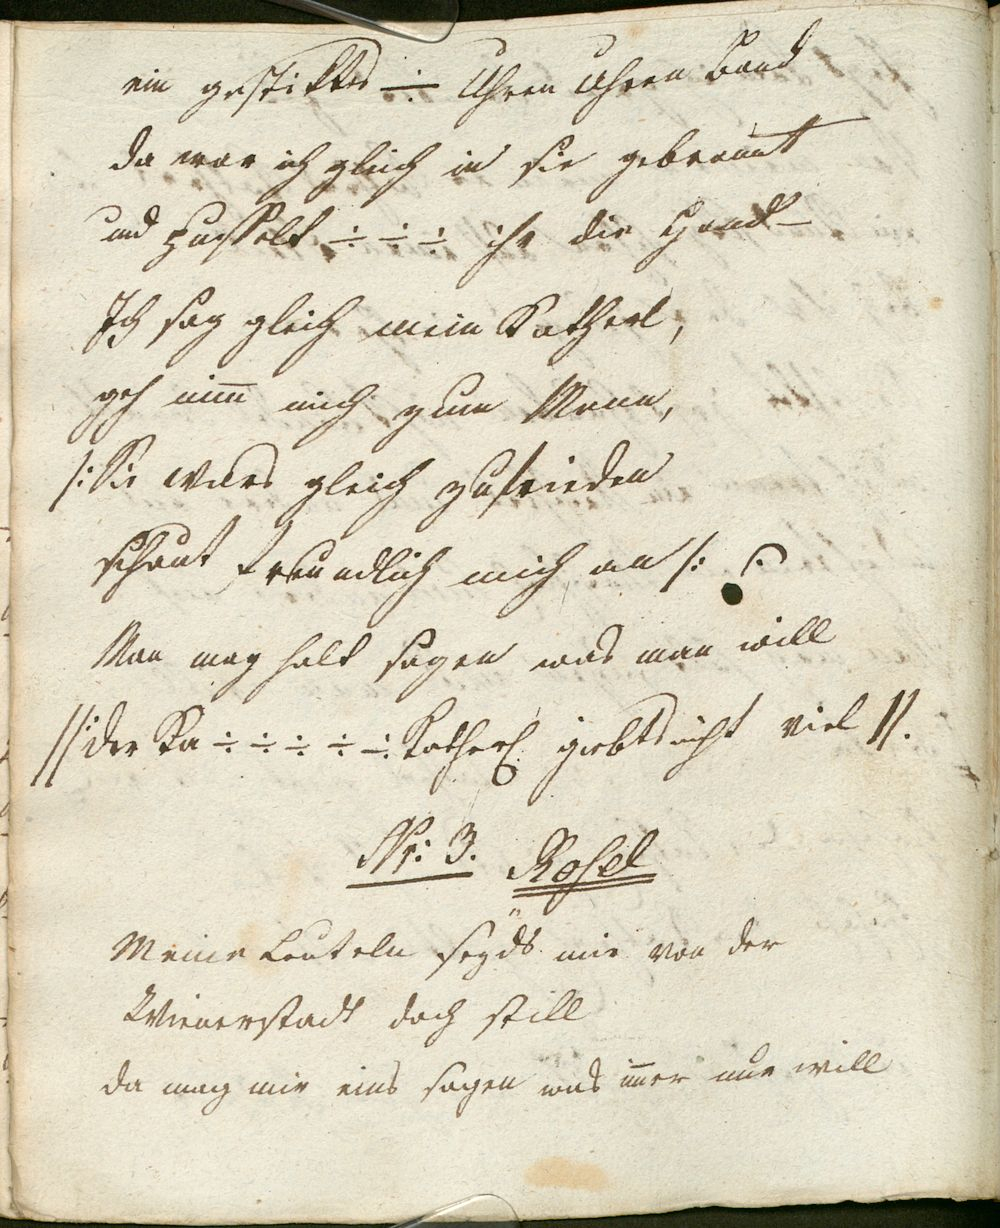 ein gestiktes ÷ Uhren Uhren Band
da war ich gleich in sie gebrannt
und ÷ ÷ ÷ ihr die Hand –
Ich sag gleich mein Katherl,
geh nim̅ mich zum Mann,
/: Sie wars gleich zufrieden
schaut freundlich mich an /:
Man mag halt sagen was man will
//: der Ka ÷ ÷ ÷ ÷ ÷ Katherl giebts nicht viel //.
Nr: 3. Rosel
Meine Leuteln seÿds mir von der
Wienerstadt doch still
da mag mir eins sagen was im̅er nur will